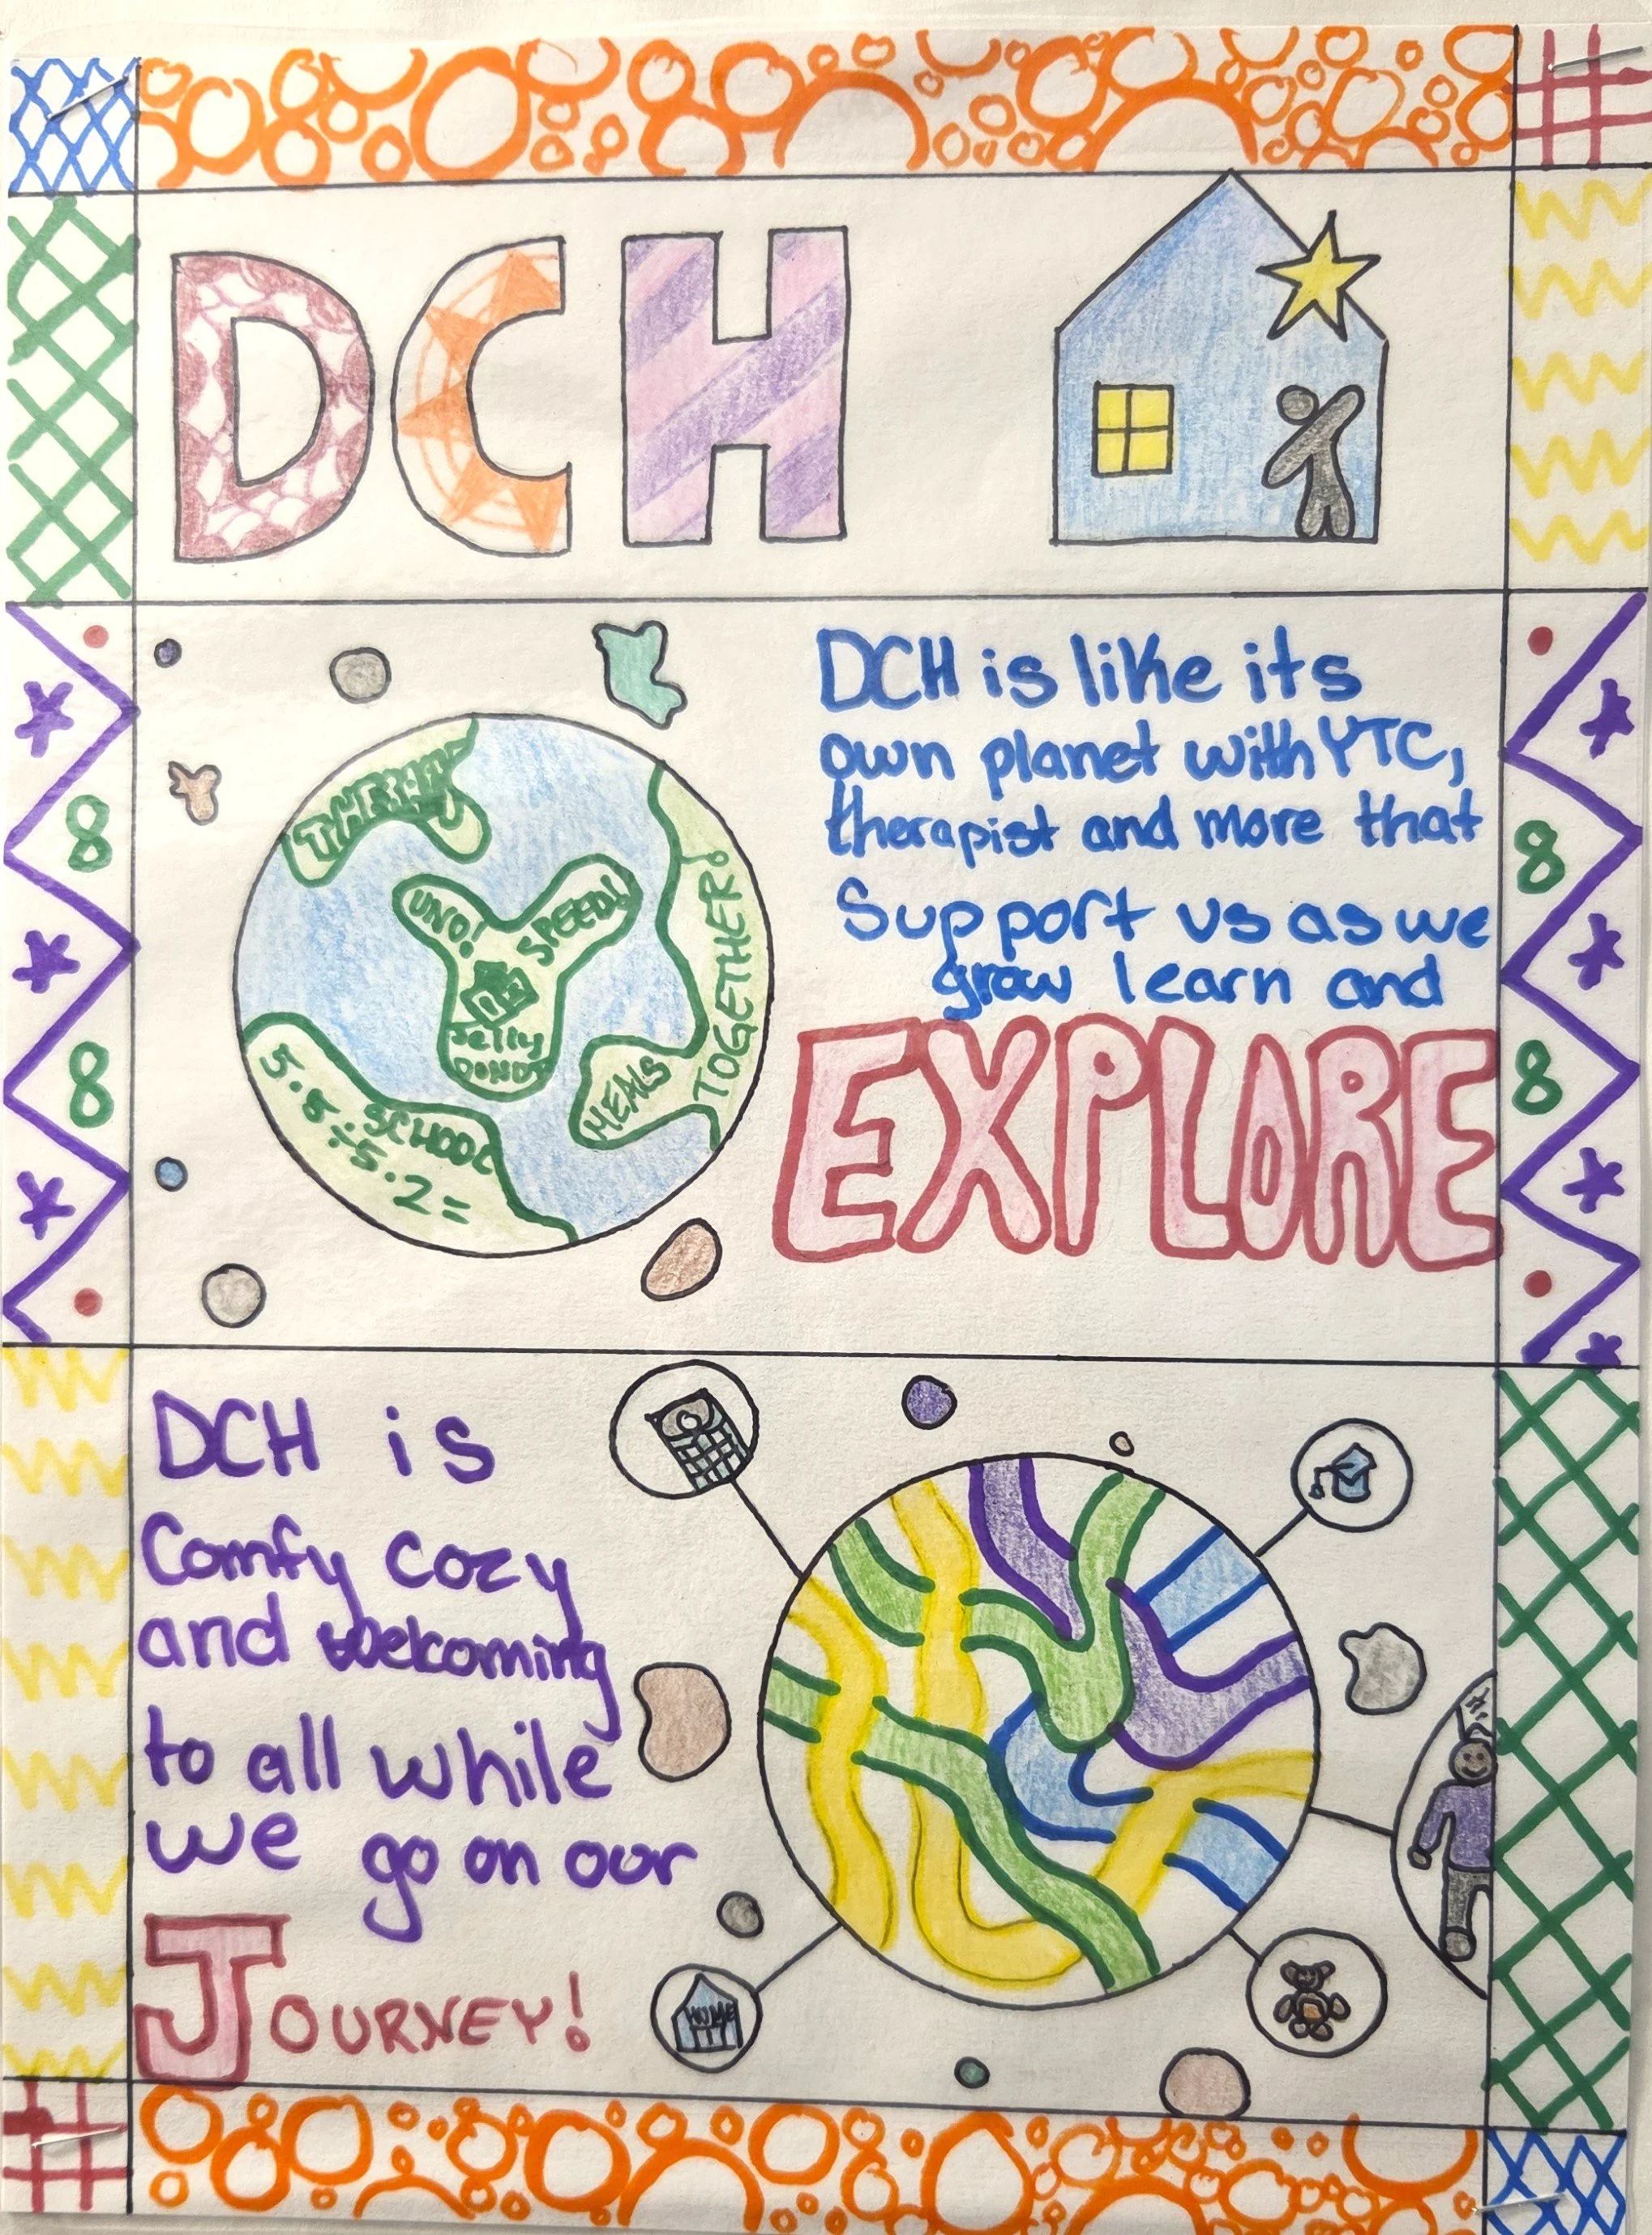 DCH
DCH is like its
own planet with YTC,
therapist and more that
Support us as we
grow learn and
EXPLORE
UNO!
SPEED!
Jelly
DONUT
MEALS
TOGETHER!
SCHOOL
5·5÷5·2=
DCH is
Comfy cozy
and welcoming
to all while
we go on our
JOURNEY!
HOME